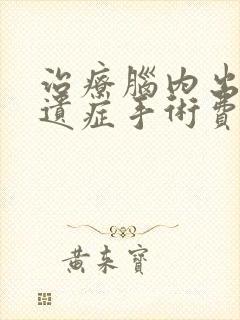 治療腦內出
遺症手術費
黃來寶